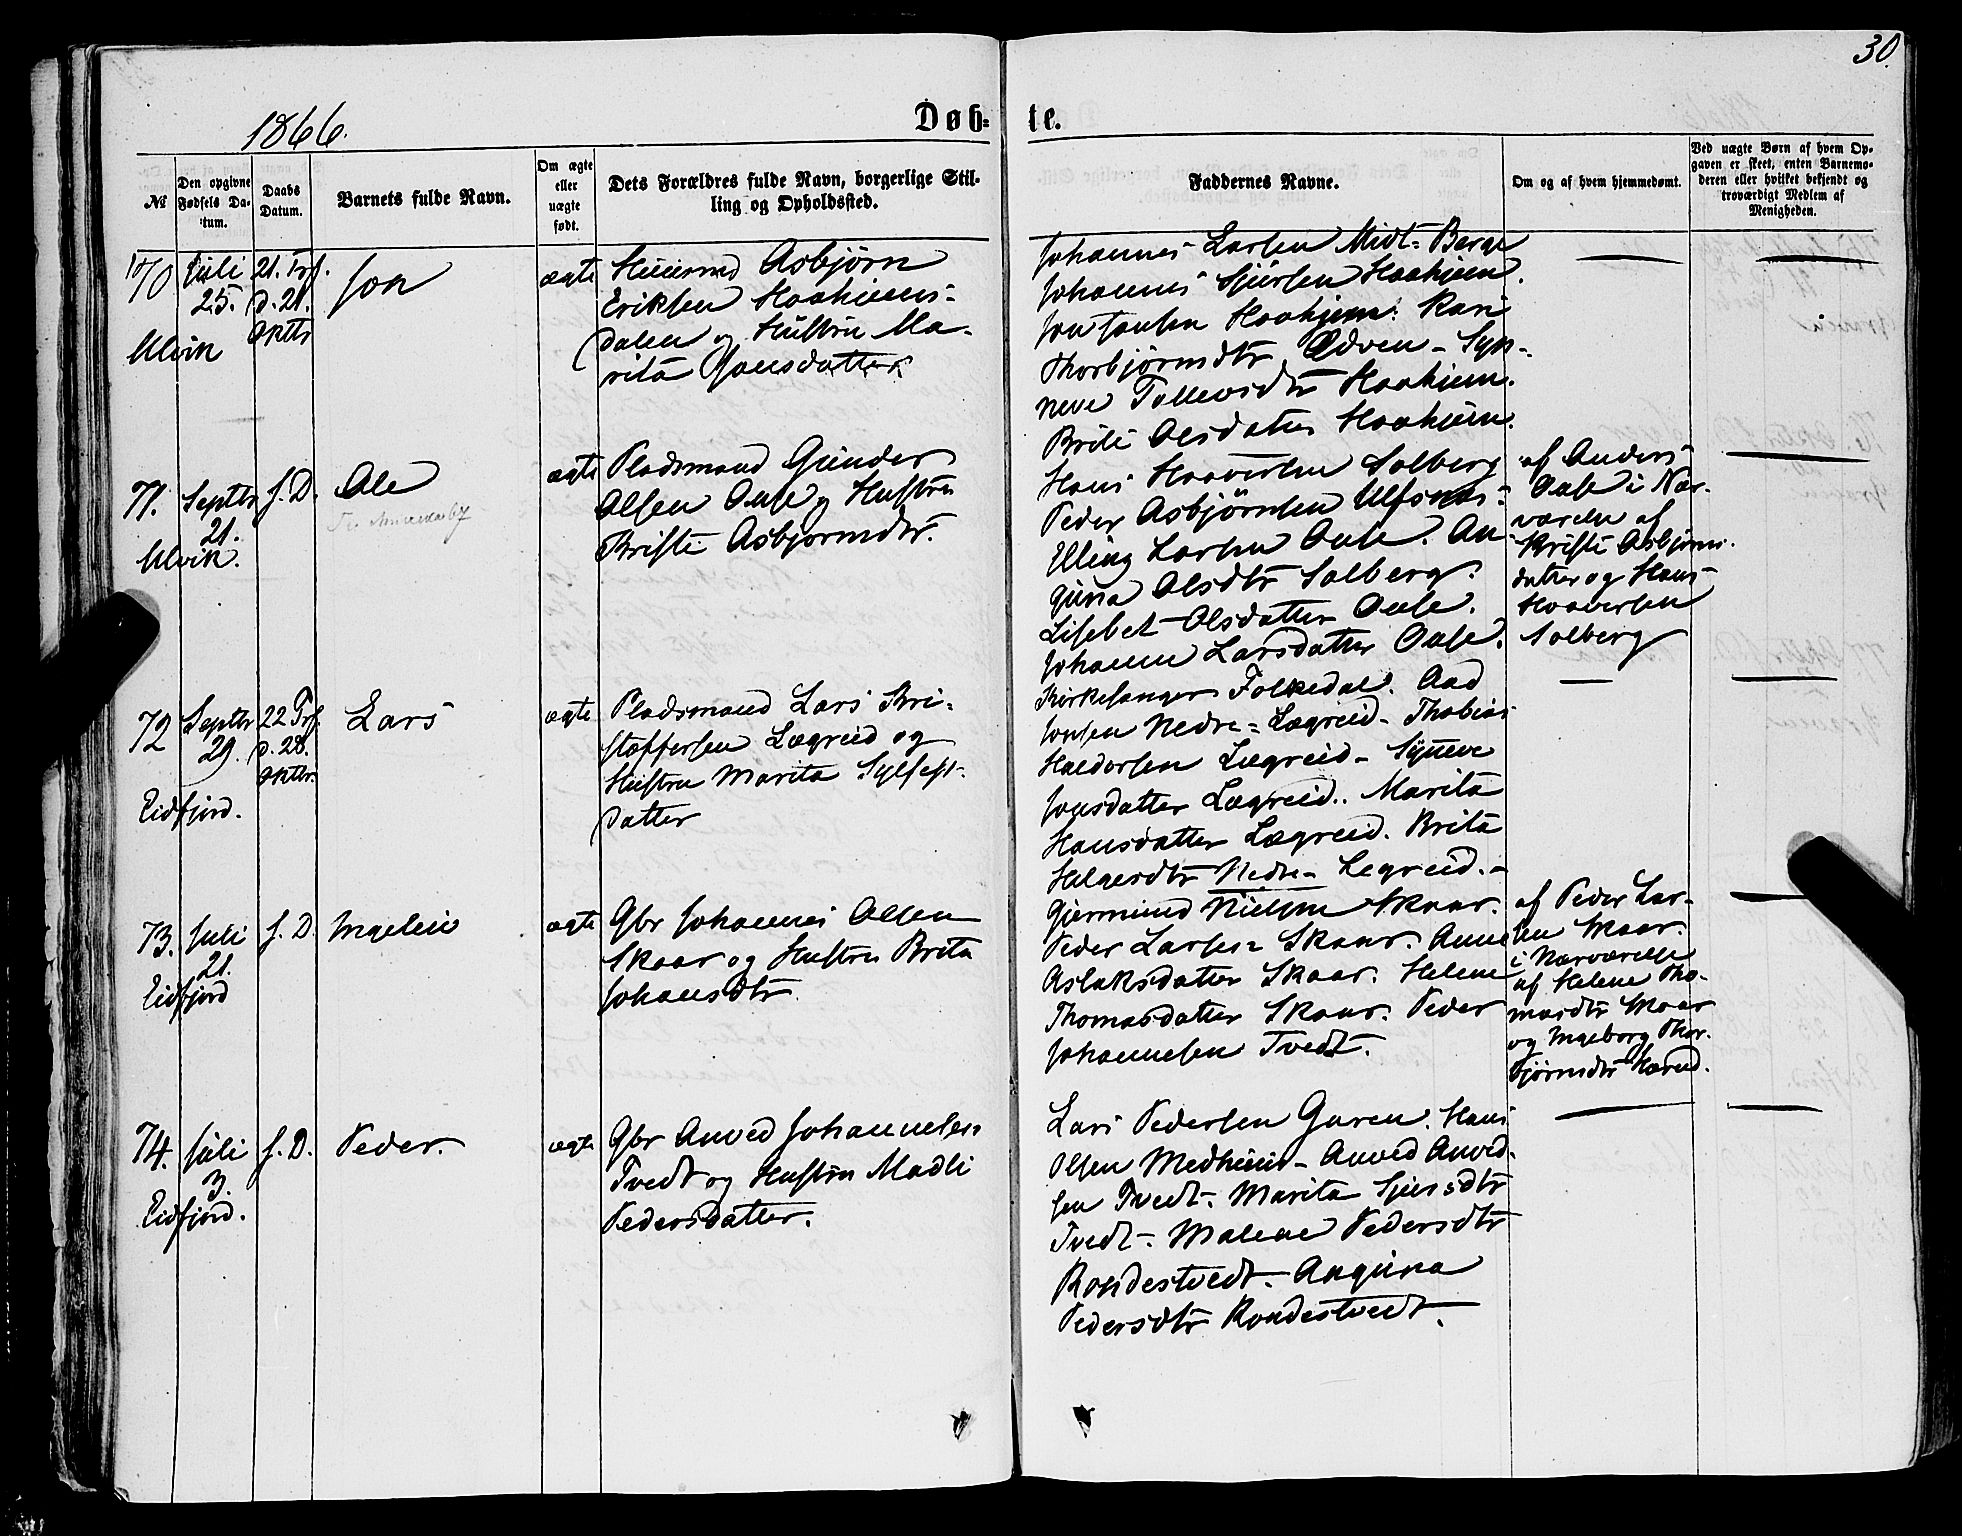 30.
1866.
Døb-
te.
No
Den opgivne Fødsels Da-tum.
Daabs Datum.
Barnets fulde Navn.
Om ægte eller uægte født.
Dets Forældres fulde Navn, borgerlige Stil-
ling og Opholdssted.
Faddernes Navne.
Om og af hvem hjemmedøbt.
Ved uægte Børn af hvem Op-
gaven er skeet, enten Barnemo-
deren eller hvilket bekjendt og
troværdigt Medlem af
Menigheden.
70
Juli
25.
Ulvik
21. Trf.
d. 21.
Oktbr
Jon
ægte
Huusmd Asbjørn
Eriksen Haaheims-
dalen og Hustru Ma-
rita Jonsdatter
Johannes Larsen Midt-Berge
Johannes Sjursen Haaheim.
Jon Jonsen Haaheim. Kari
Thorbjørnsdtr Ødven - Syn-
neve Tollevsdtr Haaheim.
Brite Olsdatter Haaheim.
71.
Septbr
21.
Ulvik.
s. D.
Ole
ægte
Pladsmand Gunder
Olsen Aase og Hustru
Kristi Asbjørnsdtr.
Hans Haaversen Solberg
Peder Asbjørnsen Ulfsnes.
Elling Larsen Aase. An-
guna Olsdtr Solberg.
Lisebet Olsdatter Aase.
Johanne Larsdatter Aase.
af Anders
Aase i Nær-
værelse af
Kristi Asbjørns-
datter og Hans
Haaversen
Solberg
72
Septbr
29.
Eidfjord.
22 Trf.
d. 28.
Oktbr.
Lars
ægte
Pladsmand Lars Kri-
stoffersen Lægreid og
Hustru Marita Sylfest-
datter
Kirkesanger Folkedal. Aad
Jonsen Nedre-Lægreid - Thobias
Haldorsen Lægreid - Synneve
Jonsdatter Lægreid. Marita
Hansdatter Lægreid. Brita
Helgesdtr Nedre-Legreid.-
73.
Juli
21.
Eidfjord
s. D.
Ingeleiv
ægte
Gbr Johannes Olsen
Skaar og Hustru Brita
Johansdtr
Gjermund Nielsen Skaar.
Peder Larsen Skaar. Anne
Aslaksdatter Skaar. Helene
Thomasdatter Skaar. Peder
Johannesen Tvedt.
af Peder Lar-
sen Skaar.
i Nærværelse
af Helene Tho-
masdtr Skaar
og Ingeborg Thor-
bjørnsdtr Hereid.
74.
Juli
3.
Eidfjord.
s. D.
Peder.
ægte
Gbr Anved Johannesen
Tvedt og Hustru Madli
Pedersdatter.
Lars Pedersen Garen. Hans
Olsen Medheim - Anved Anved-
sen Tvedt - Marita Sjursdtr
Tvedt - Malene Pedersdtr
Rondestvedt - Anguna
Pedersdtr Rondestvedt.